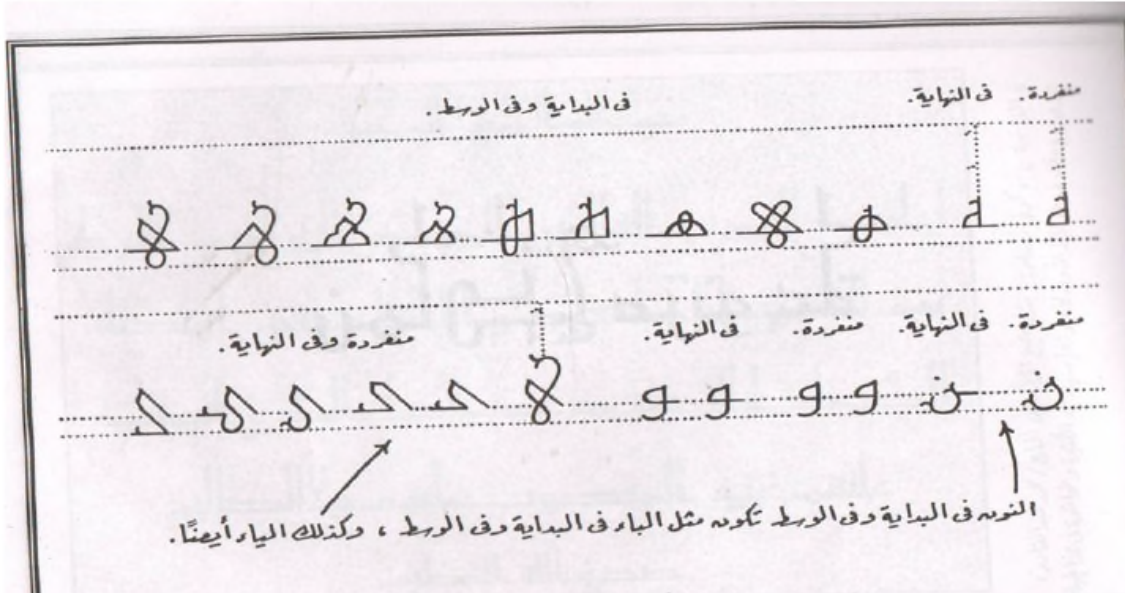 منفردة. فى النهاية. فى البداية وفى الوسط.
منفردة. فى النهاية. منفردة. فى النهاية. منفردة وفى النهاية.
ن ن و و و و
النون فى البداية وفى الوسط تكون مثل الباء فى البداية وفى الوسط ، وكذلك الياء أيضًا.